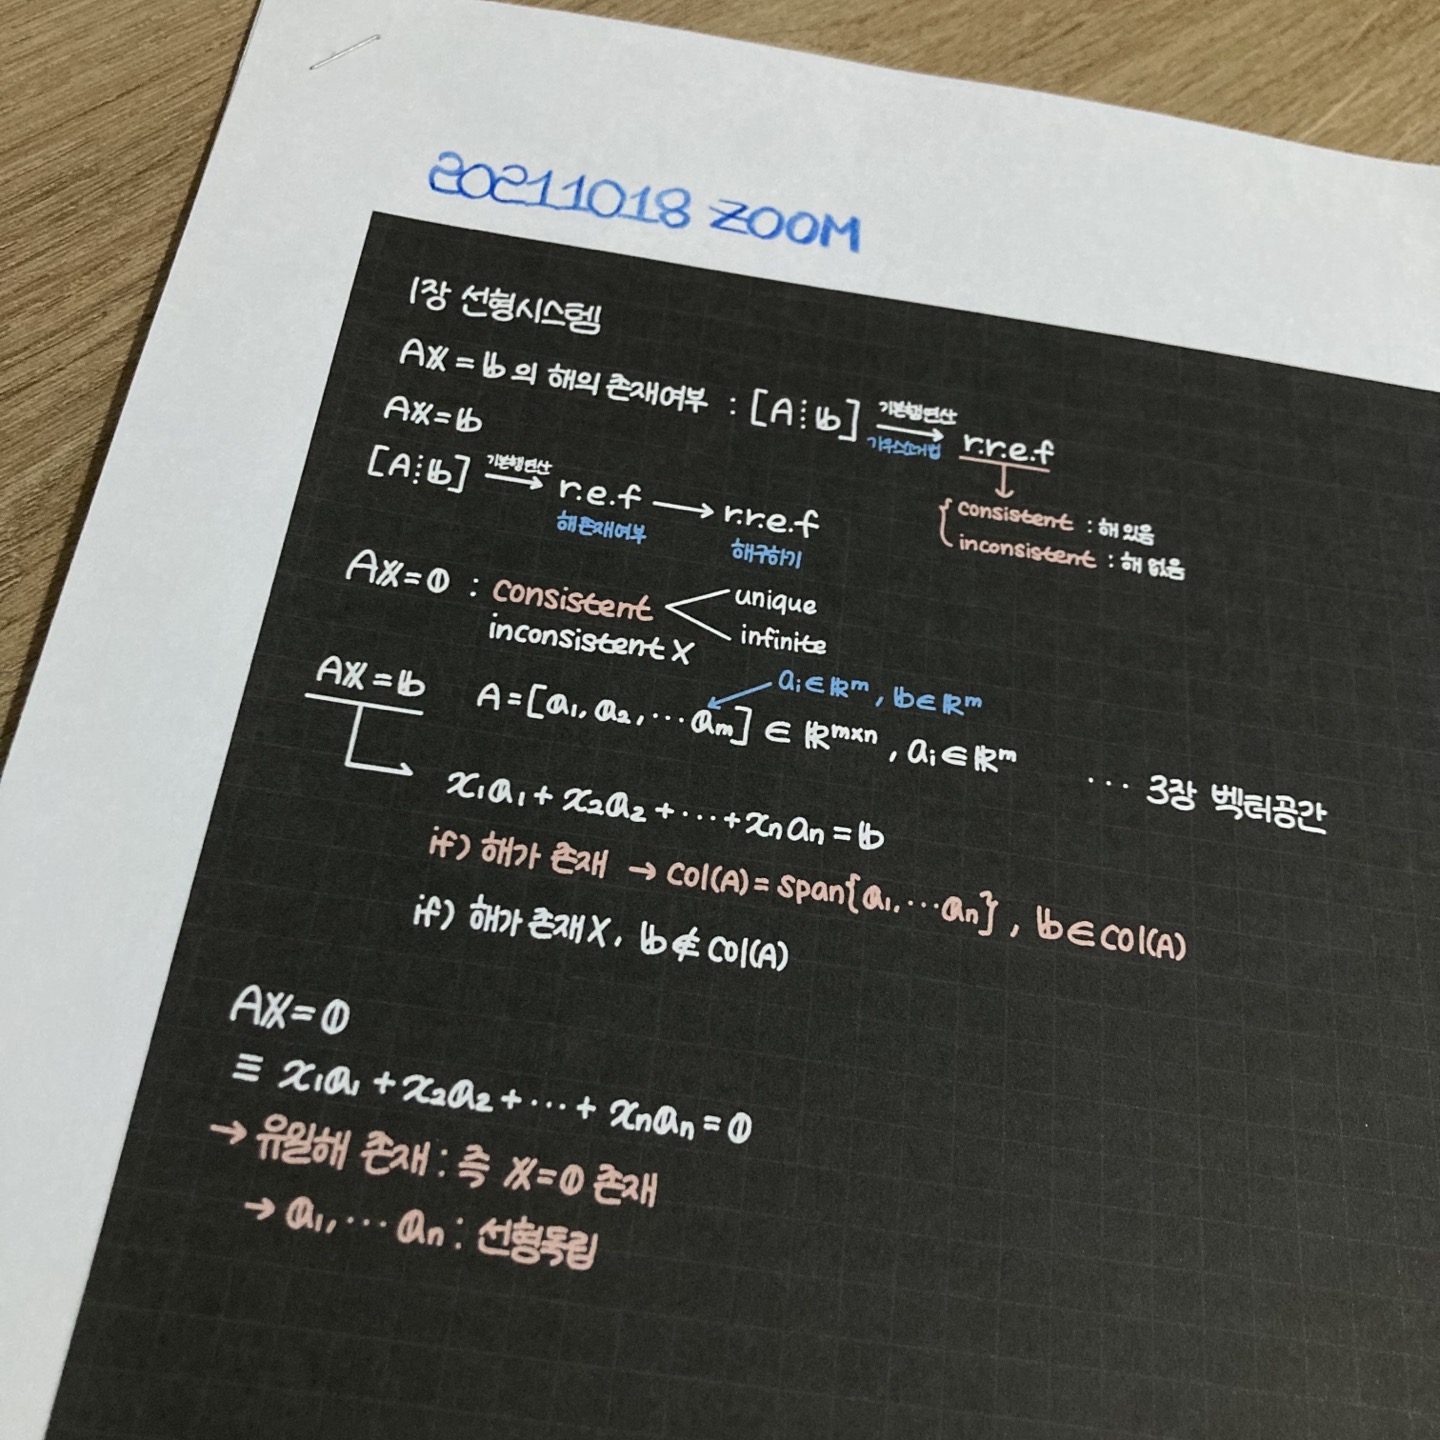 20211018 ZOOM
1장 선형시스템
Ax = b 의 해의 존재여부 : [A⋮b] 기본행연산 → 가우스소거법 r.r.e.f
Ax = b
consistent : 해 있음
inconsistent : 해 없음
[A⋮b] 기본행연산 → r.e.f → r.r.e.f
해존재여부 해구하기
Ax = 0 : consistent < unique
inconsistent X infinite
aᵢ ∈ ℝᵐ , b ∈ ℝᵐ
Ax = b A = [a₁, a₂, ⋯ aₘ] ∈ ℝᵐˣⁿ , aᵢ ∈ ℝᵐ ⋯ 3장 벡터공간
x₁a₁ + x₂a₂ + ⋯ + xₙaₙ = b
if) 해가 존재 → col(A) = span{a₁, ⋯ aₙ} , b ∈ col(A)
if) 해가 존재X, b ∉ col(A)
Ax = 0
≡ x₁a₁ + x₂a₂ + ⋯ + xₙaₙ = 0
→ 유일해 존재 : 즉 x = 0 존재
→ a₁, ⋯ aₙ : 선형독립